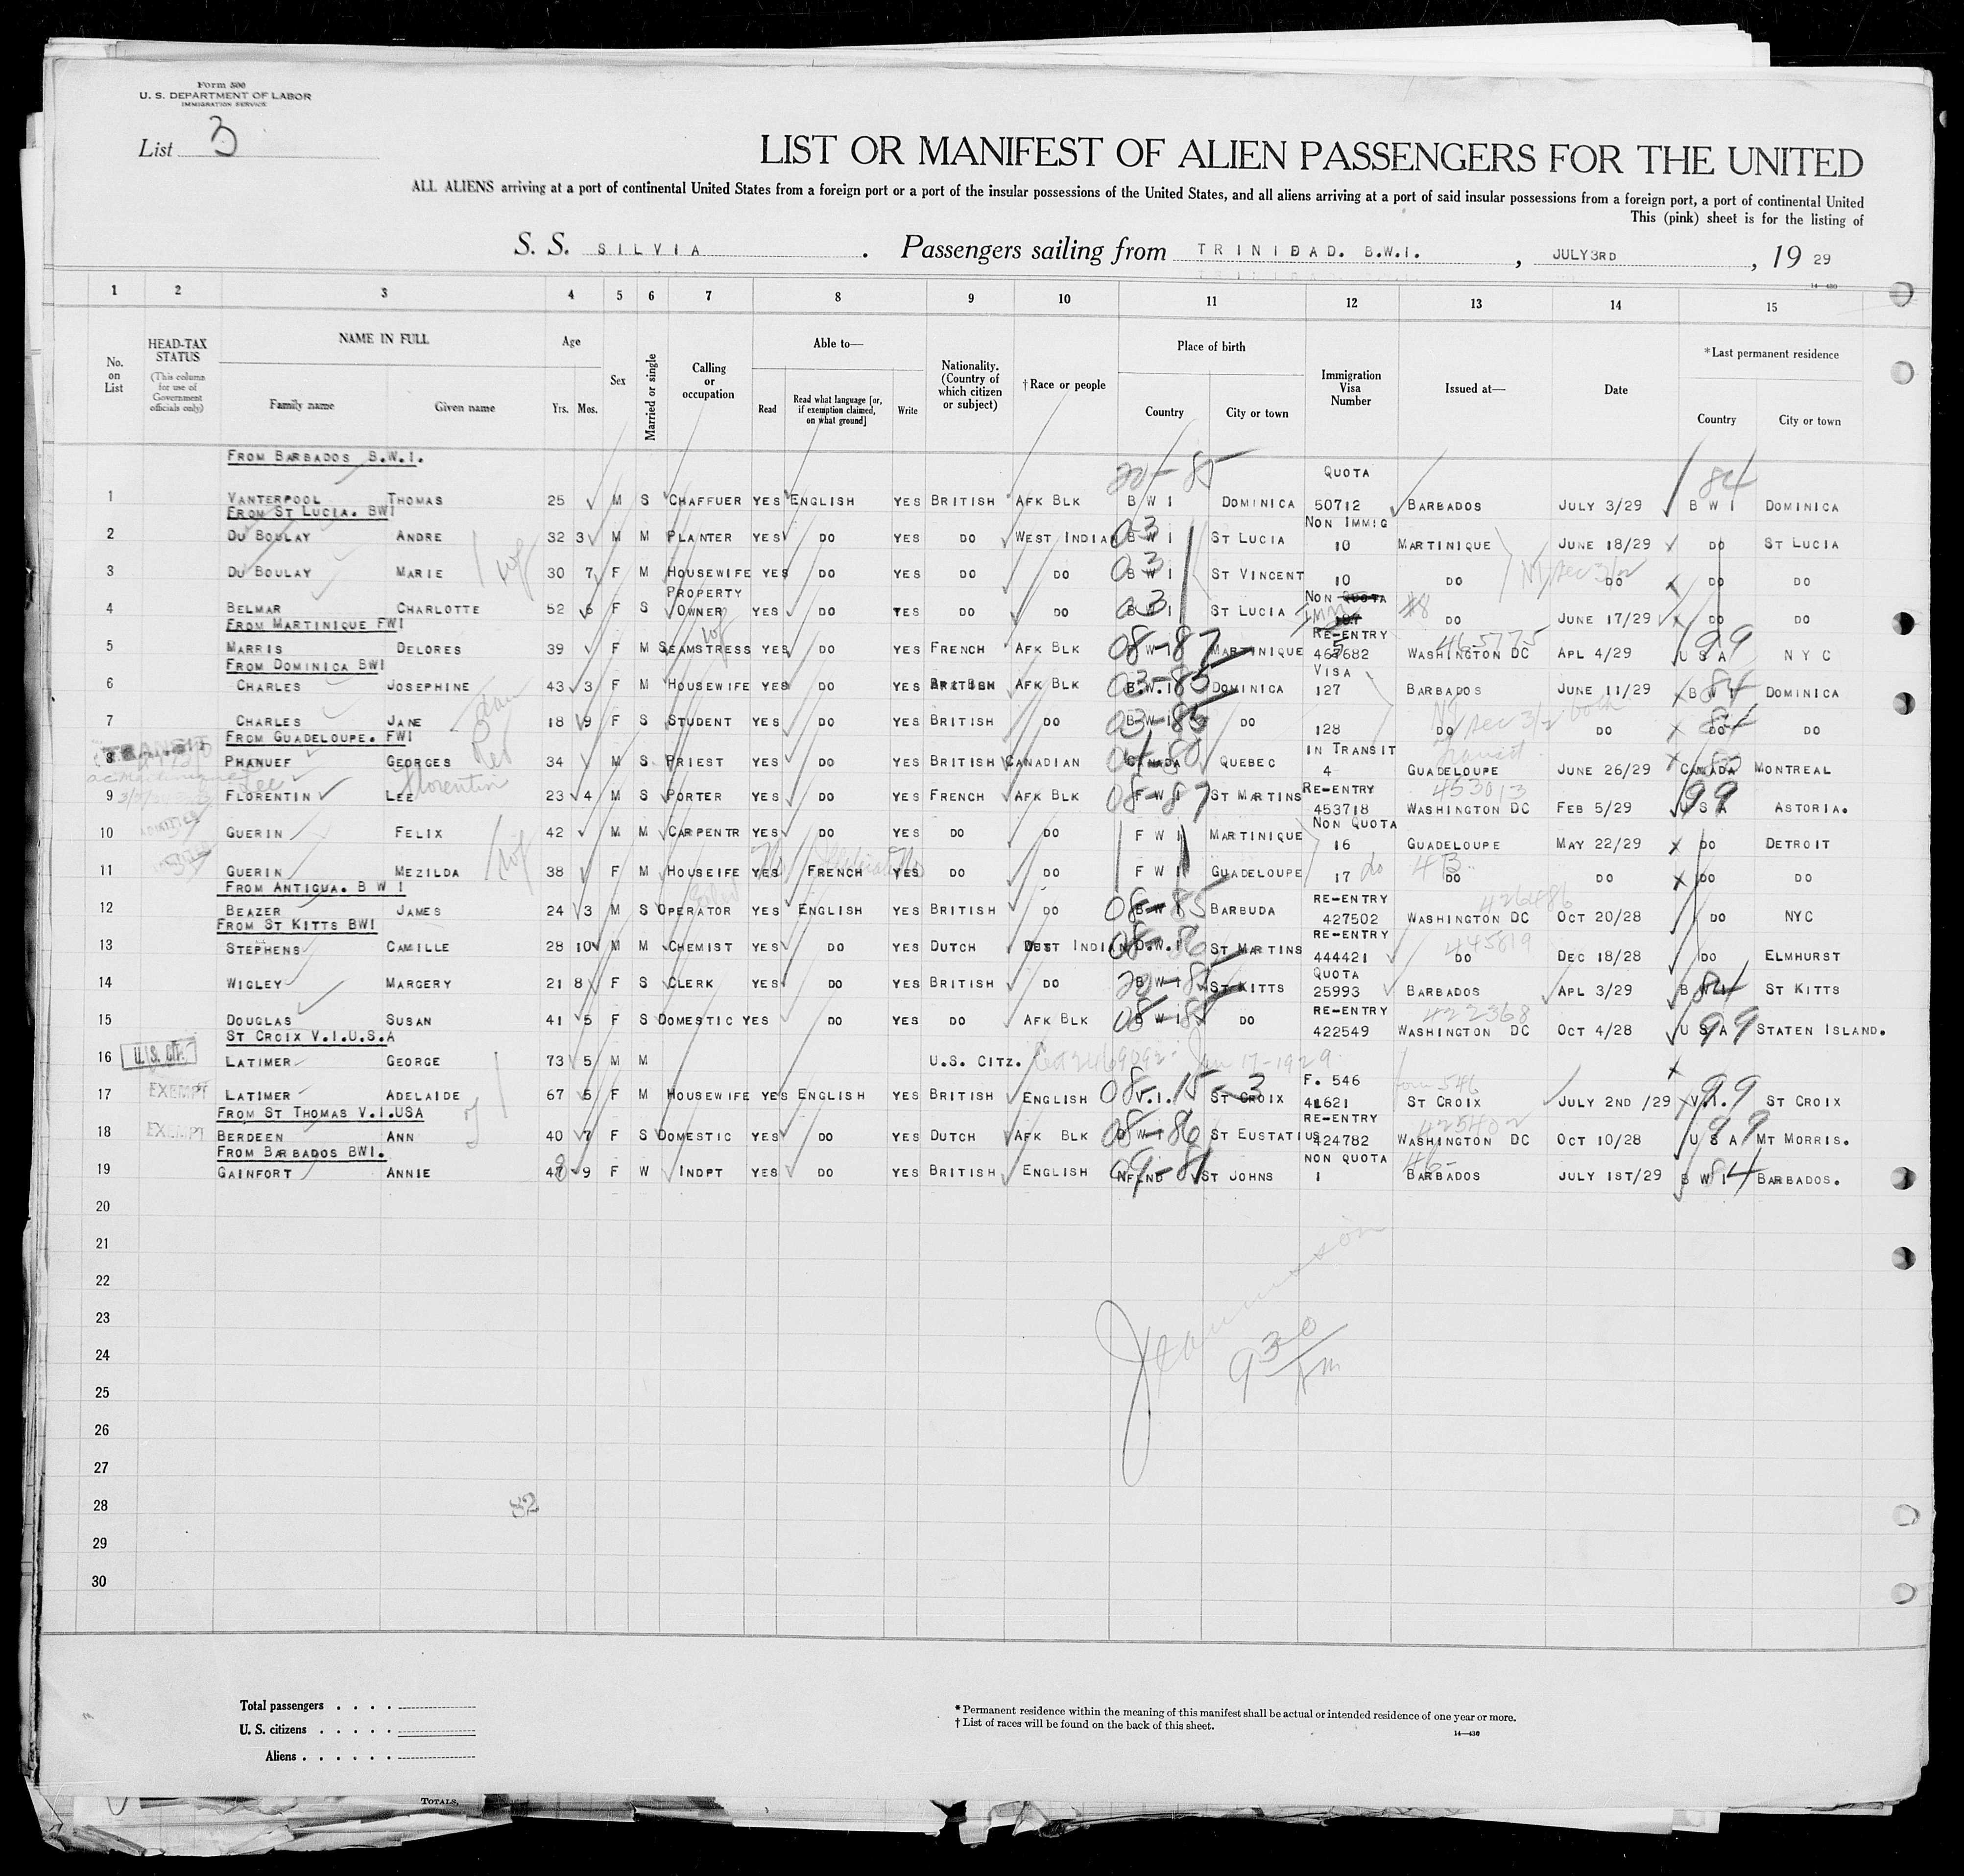 Form 500
U. S. DEPARTMENT OF LABOR
IMMIGRATION SERVICE
List 3
LIST OR MANIFEST OF ALIEN PASSENGERS FOR THE UNITED
ALL ALIENS arriving at a port of continental United States from a foreign port or a port of the insular possessions of the United States, and all aliens arriving at a port of said insular possessions from a foreign port, a port of continental United
This (pink) sheet is for the listing of
S. S. SILVIA. Passengers sailing from TRINIDAD. B.W.I., JULY 3RD, 19 29
14—430
1 2 3 4 5 6 7 8 9 10 11 12 13 14 15
No. on List
HEAD-TAX STATUS
(This column for use of Government officials only)
NAME IN FULL
Family name Given name
Age
Yrs. Mos.
Sex
Married or single
Calling or occupation
Able to—
Read
Read what language [or, if exemption claimed, on what ground]
Write
Nationality. (Country of which citizen or subject)
†Race or people
Place of birth
Country City or town
Immigration Visa Number
Issued at—
Date
*Last permanent residence
Country City or town
FROM BARBADOS B.W.I.
20-85 QUOTA 84
1 VANTERPOOL THOMAS 25 M S CHAFFUER YES ENGLISH YES BRITISH AFK BLK B W I DOMINICA 50712 BARBADOS JULY 3/29 B W I DOMINICA
FROM ST LUCIA. BWI
NON IMMIG
2 DU BOULAY ANDRE 32 3 M M PLANTER YES DO YES DO WEST INDIAN B W I 03 ST LUCIA 10 MARTINIQUE JUNE 18/29 DO ST LUCIA
3 DU BOULAY MARIE 30 7 F M HOUSEWIFE YES DO YES DO DO B W I 03 ST VINCENT 10 DO DO DO DO
PROPERTY NON QUOTA
4 BELMAR CHARLOTTE 52 6 F S OWNER YES DO YES DO DO B W I 03 ST LUCIA DO JUNE 17/29 DO DO
FROM MARTINIQUE FWI
RE-ENTRY 465775
5 MARRIS DELORES 39 F M SEAMSTRESS YES DO YES FRENCH AFK BLK F W I 08-87 MARTINIQUE 467682 WASHINGTON DC APL 4/29 U S A 99 N Y C
FROM DOMINICA BWI
VISA
6 CHARLES JOSEPHINE 43 3 F M HOUSEWIFE YES DO YES BRITISH AFK BLK B.W.I 03-85 DOMINICA 127 BARBADOS JUNE 11/29 B W I 84 DOMINICA
7 CHARLES JANE 18 9 F S STUDENT YES DO YES BRITISH DO B W I 03-85 DO 128 DO DO DO 84 DO
FROM GUADELOUPE. FWI
TRANSIT IN TRANSIT Transit
8 PHANUEF GEORGES 34 M S PRIEST YES DO YES BRITISH CANADIAN CANADA QUEBEC 4 GUADELOUPE JUNE 26/29 CANADA MONTREAL
Lee Florentin
RE-ENTRY 453013
9 FLORENTIN LEE 23 4 M S PORTER YES DO YES FRENCH AFK BLK F W I 08-87 ST MARTINS 453718 WASHINGTON DC FEB 5/29 U S A 99 ASTORIA.
NON QUOTA
10 GUERIN FELIX 42 M M CARPENTR YES DO YES DO DO F W I MARTINIQUE 16 GUADELOUPE MAY 22/29 DO DETROIT
11 GUERIN MEZILDA 38 F M HOUSEIFE YES FRENCH YES DO DO F W I GUADELOUPE 17 do DO DO DO DO
FROM ANTIGUA. B W I
RE-ENTRY 426486
12 BEAZER JAMES 24 3 M S OPERATOR YES ENGLISH YES BRITISH DO B W I 08-85 BARBUDA 427502 WASHINGTON DC OCT 20/28 DO NYC
FROM ST KITTS BWI
RE-ENTRY 445819
13 STEPHENS CAMILLE 28 10 M M CHEMIST YES DO YES DUTCH WEST INDIAN D.W.I 08-86 ST MARTINS 444421 DO DEC 18/28 DO ELMHURST
QUOTA
14 WIGLEY MARGERY 21 8 F S CLERK YES DO YES BRITISH DO B W I 20-85 ST KITTS 25993 BARBADOS APL 3/29 B W I 84 ST KITTS
RE-ENTRY 422368
15 DOUGLAS SUSAN 41 5 F S DOMESTIC YES DO YES DO AFK BLK B W I 08-85 DO 422549 WASHINGTON DC OCT 4/28 U S A 99 STATEN ISLAND.
ST CROIX V.I.U.S.A
U.S. CIT.
16 LATIMER GEORGE 73 5 M M U.S. CITZ. Jan 17-1929
F. 546 form 546
EXEMPT
17 LATIMER ADELAIDE 67 5 F M HOUSEWIFE YES ENGLISH YES BRITISH ENGLISH V.I. 08-15 ST CROIX 41621 ST CROIX JULY 2ND /29 V.I. 99 ST CROIX
FROM ST THOMAS V.I.USA
RE-ENTRY 425402
EXEMPT
18 BERDEEN ANN 40 7 F S DOMESTIC YES DO YES DUTCH AFK BLK D W I 08-86 ST EUSTATIUS 424782 WASHINGTON DC OCT 10/28 U S A 99 MT MORRIS.
FROM BARBADOS BWI.
NON QUOTA
19 GAINFORT ANNIE 48 9 F W INDPT YES DO YES BRITISH ENGLISH NFLND 09-81 ST JOHNS 1 BARBADOS JULY 1ST/29 B W I 84 BARBADOS.
20
21
22
23
24
25
26
27
28
29
30
9 30 AM
82
Total passengers . . . .
U. S. citizens . . . . .
Aliens . . . . . .
* Permanent residence within the meaning of this manifest shall be actual or intended residence of one year or more.
† List of races will be found on the back of this sheet.
14—430
TOTALS.